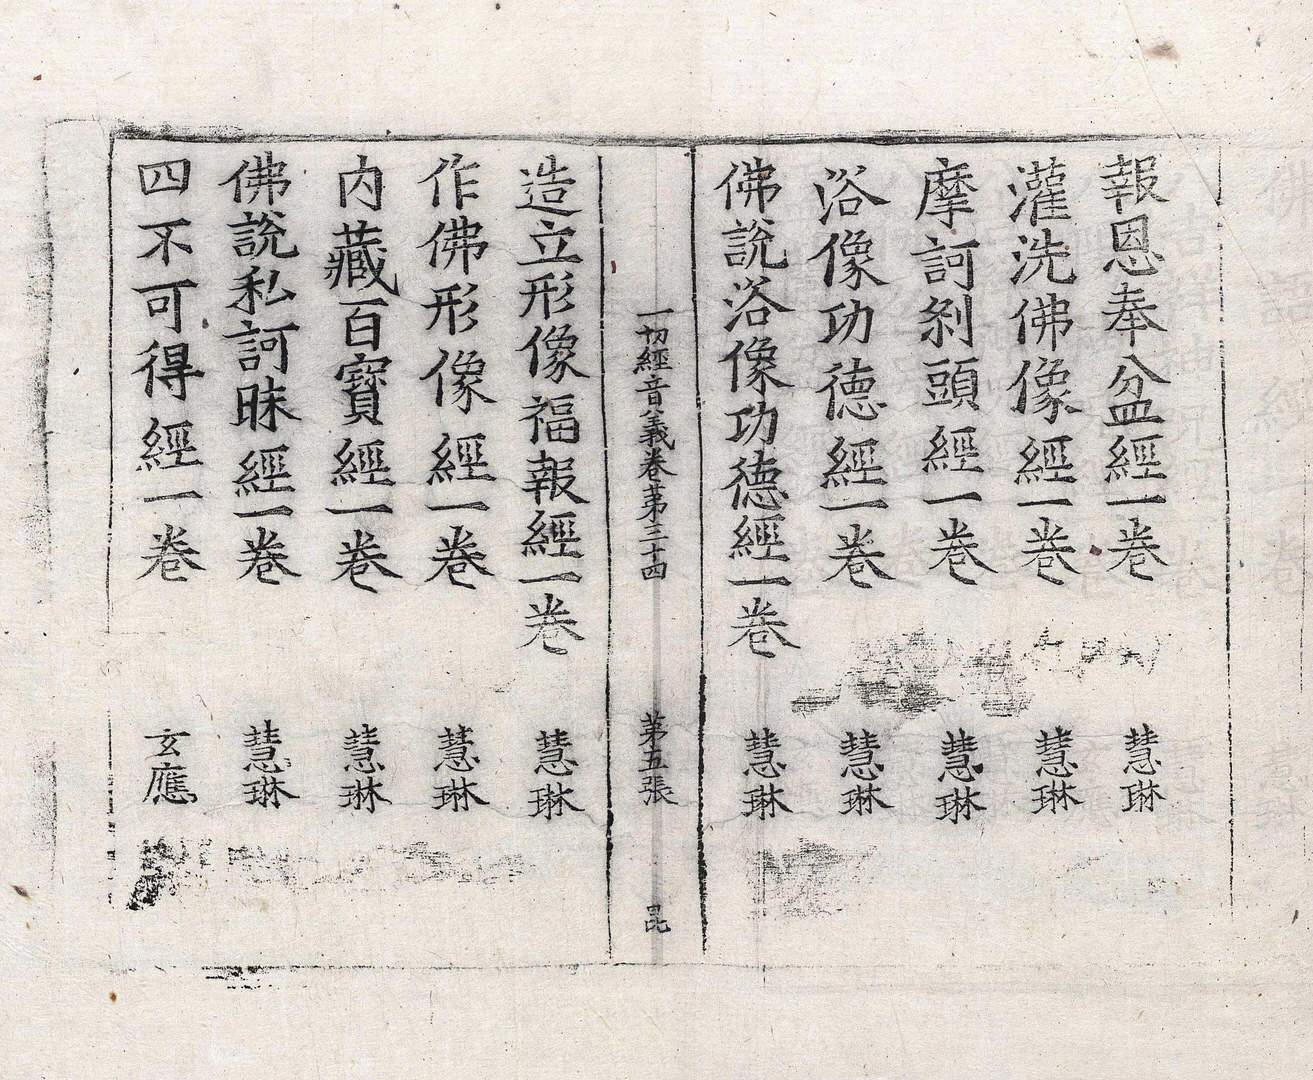 報恩奉盆經一卷 慧琳
灌洗佛像經一卷 慧琳
摩訶剎頭經一卷 慧琳
浴像功德經一卷 慧琳
佛說浴像功德經一卷 慧琳
一切經音義卷第三十四 第五張 毘
造立形像福報經一卷 慧琳
作佛形像經一卷 慧琳
內藏百寶經一卷 慧琳
佛說私訶昧經一卷 慧琳
四不可得經一卷 玄應